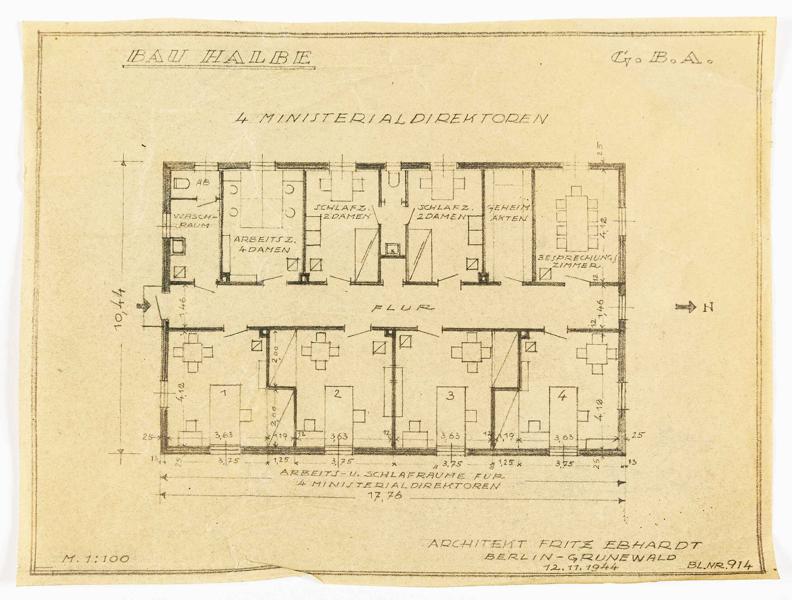 BAU HALBE
G.B.A.
4 MINISTERIALDIREKTOREN
25
AB
WASCH-
RAUM
ARBEITSZ.
4 DAMEN
SCHLAFZ.
2 DAMEN
SCHLAFZ.
2 DAMEN
GEHEIM
AKTEN
BESPRECHUNGS
ZIMMER
4,12
10,44
1,46
FLUR
12
1,46
12
N
4,12
1
2,00
2,00
2
3
4
4,12
25
3,63
1,19
12
3,63
12
3,63
12
1,19
3,63
25
13
25
3,75
1,25
3,75
3,75
1,25
3,75
25
13
ARBEITS- U. SCHLAFRÄUME FÜR
4 MINISTERIALDIREKTOREN
17,76
M. 1:100
ARCHITEKT FRITZ EBHARDT
BERLIN-GRUNEWALD
12.11.1944
BL.NR. 914